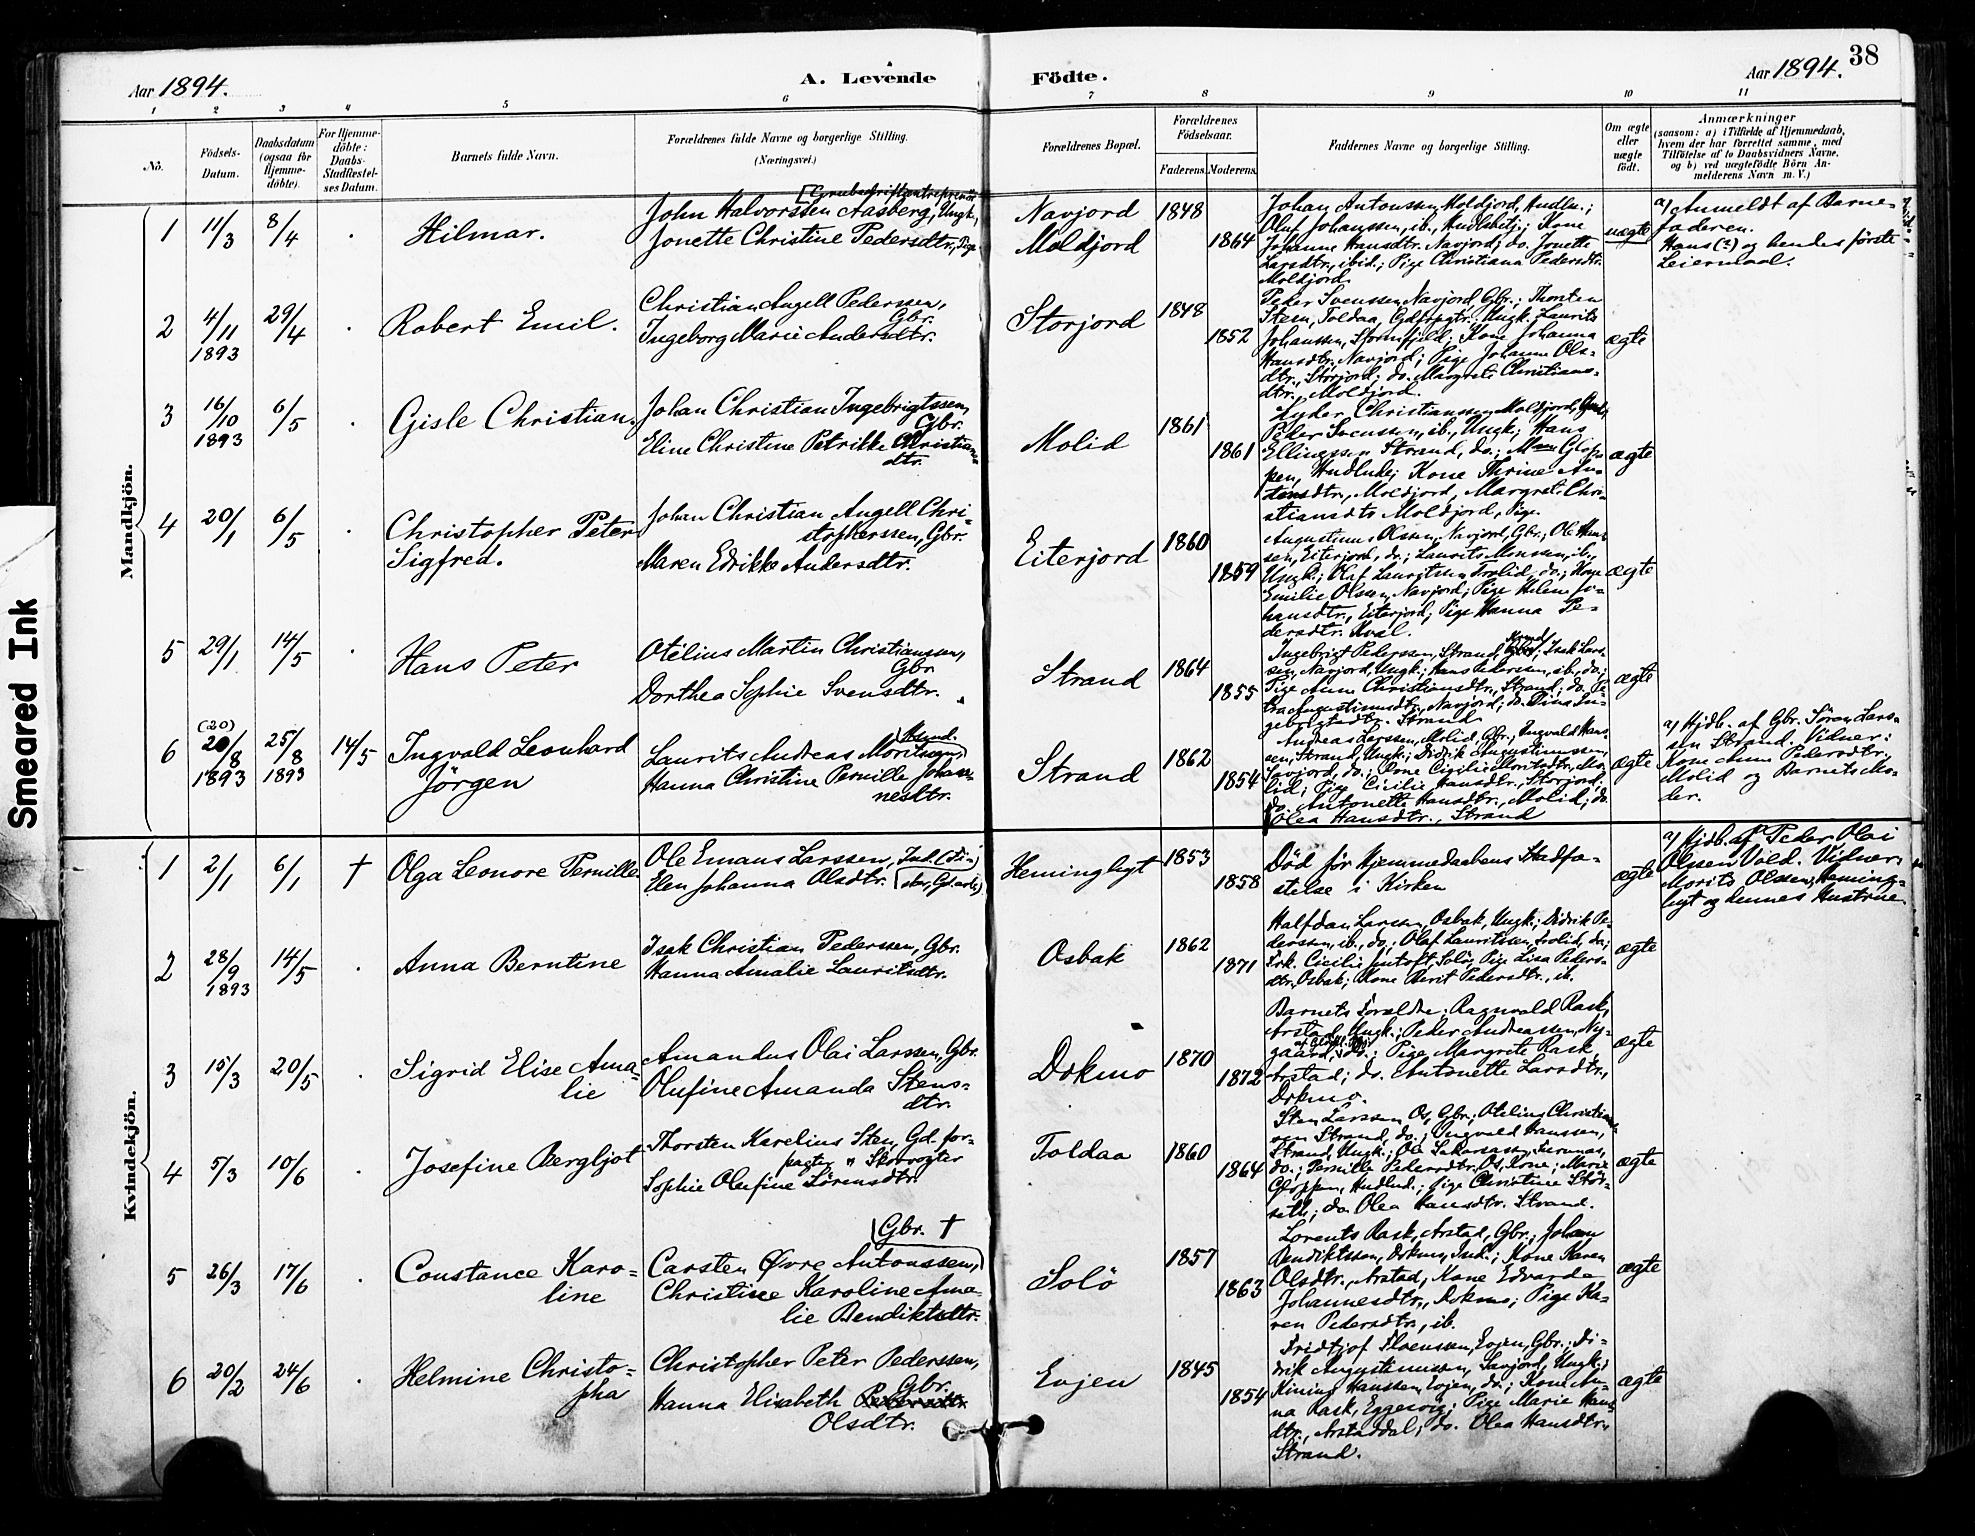 38
Aar 1894.
A. Levende
Födte.
Aar 1894.
1 2 3 4 5 6 7 8 9 10 11
No.
Födsels-
Datum.
Daabsdatum
(ogsaa for
Hjemme-
döbte).
For Hjemme-
döbte:
Daabs-
Stadfæstel-
ses Datum.
Barnets fulde Navn.
Forældrenes fulde Navne og borgerlige Stilling.
(Næringsvei.)
Forældrenes Bopæl.
Forældrenes
Födselsaar.
Faderens. Moderens.
Faddernes Navne og borgerlige Stilling.
Om ægte
eller
uægte
født.
Anmærkninger
(saasom: a) i Tilfælde af Hjemmedaab,
hvem der har forrettet samme, med
Tilföielse af to Daabsvidners Navne,
og b) ved uægtefödte Börn An-
melderens Navn m. V.)
Smeared Ink
Mandkjön.
1 11/3 8/4 . Hilmar.
John Halvorssen Aasberg, Ungk.,
Jonette Christine Pedersdtr., Pige
Navjord
Moldjord
1848
1864
Johan Antonssen, Moldjord, Handlm.;
Oluf Johanssen, ib., Handlsbetj.; Kone
Johanne Hansdtr. Navjord; do. Jonette
Larsdtr., ibid.; Pige Christiana Pedersdtr.
Moldjord
uægte
a) Anmeldt af Barne-
faderen.
Hans (?) og hendes første
Leiermaal.
2 4/11 1893 29/4 . Robert Emil.
Christian Angell Pederssen,
Gbr.
Ingeborg Marie Andersdtr.
Storjord
1848
1852
Peder Svenssen, Navjord, Gbr.; Thorsten
Sten, Toldaa, Gdforpagtr.; Ungk. Laurits
Johanssen, Stormfjeld; Kone Johanna
Hansdtr., Navjord; Pige Johanne Ols-
dtr., Storjord; do. Margrete Christians-
dtr., Moldjord.
ægte
3 16/10 1893 6/5 . Gisle Christian.
Johan Christian Ingebrigtssen,
Gbr.
Eline Christine Petrikke Christians-
dtr.
Molid
1861
1861
Lyder Christianssen, Moldjord,
Peder Svenssen, ib., Ungk.; Hans
Ellingssen Strand, do.;
pen, Kone Thrine An-
tonsdtr., Moldjord, Margrete Chri-
stiansdtr Moldjord, Pige.
ægte
4 20/1 6/5 . Christopher Peter
Sigfred.
Johan Christian Angell Chri-
stopherssen, Gbr.
Maren Edrikke Andersdtr.
Eiterjord
1860
1859
Augustinus Olssen, Navjord, Gbr.; Ole Hans-
sen, Eiterjord, do.; Laurits Monssen, ib.,
Ungk.; Olaf Lauritssen Trolid, do.; Kone
Emilie Olssen, Navjord; Pige Helene Jo-
hansdtr., Eiterjord; Pige Hanna Pe-
dersdtr. Kval.
ægte
5 29/1 14/5 . Hans Peter
Otélius Martin Christianssen,
Gbr
Dorthea Sophie Svensdtr.
Strand
1864
1855
Ingebrigt Pederssen, Strand, Isak Lars-
sen, Navjord, Ungk.; Hans Pederssen, ib., do.;
Pige Anne Christiansdtr., Strand; do. Pe-
tra Augustinusdtr., Navjord; do. Dina In-
gebrigtsdtr. Strand
ægte
6 (20) 20/8 1893 25/8 1893 14/5 Ingvald Leonhard
Jörgen
Laurits Andreas Moritssen,
Hanna Christine Pernille Johan-
nesdtr.
Strand
1862
1854
Andreas Larssen, Molid, Gbr., Ingvald Hans-
sen, Strand, Ungk.; Didrik Augustinussen,
Savjord, do.; Kone Cicilie Moritsdtr., Mo-
lid; Pige Cicilie Hansdtr., Storjord;
do. Antonette Hansdtr., Molid; do.
Olea Hansdtr., Strand
ægte
a) Hjdb. af Gbr. Sören Lars-
sen Strand. Vidner:
Kone Anne Pedersdtr.
Molid og Barnets Mo-
der.
Kvindekjön.
1 2/1 6/1 † Olga Leonore Pernille
Ole Emaus Larssen, Ind.
Elen Johanna Olsdtr.
Hemingbyt
1853
1858
Död för Hjemmedaabens Stadfæ-
stelse i Kirken
ægte
a) Hjdb. af Peder Olai
Olssen Vold. Vidner:
Morits Olssen, Heming-
byt og dennes Hustrue
2 28/9 1893 14/5 . Anna Berntine
Isak Christian Pederssen, Gbr.
Hanna Amalie Lauritsdtr.
Osbak
1862
1871
Halfdan Larssen, Osbak, Ungk.; Didrik Pe-
derssen, ib., do.; Olaf Lauritssen, Trolid, do.;
Frk. Cicilie Jentoft, Solö; Pige Lisa Peders-
dtr., Osbak; Kone Berit Pedersdtr., ib.
ægte
3 15/3 20/5 . Sigrid Elise Ama-
lie
Amandus Olai Larssen, Gbr.
Olufine Amanda Stens-
dtr.
Dokmo
1870
1872
Barnets Forældre; Ragnvald Rask,
Arstad, Ungk.; Peder Andreassen, Ny-
gaard, do.; Pige Margrete Rask
Arstad; do. Antonette Larsdtr.,
Dokmo.
ægte
4 5/3 10/6 . Josefine Bergljot
Thorsten Karelius Sten, Gd. for-
pagter og Skovvogter
Sophie Olufine Sörensdtr.
Toldaa
1860
1864
Sten Larssen, Os, Gbr.; Otelius Christian-
sen Strand, do.; Ingvald Hanssen,
Strand, Ungk.; Ole Zakariassen,
do.; Pernille Pedersdtr. Os, Kone; Marie
Gloppen, Handlnd.; Pige Christine Stor-
seth; do. Olea Hansdtr. Strand.
ægte
5 26/3 17/6 . Constance Karo-
line
Gbr. †
Carsten Övre Antonssen,
Christine Karoline Ama-
lie Bendiktsdtr.
Solö
1857
1863
Lorents Rask, Arstad, Gbr.; Johan
Bendiktssen, Dokmo, Ind.; Kone Karen
Olsdtr., Arstad, Kone Edvarda
Johannesdtr., Dokmo; Pige Ka-
ren Pedersdtr., ib.
ægte
6 20/2 24/6 . Helmine Christo-
pha
Christopher Peter Pederssen,
Gbr.
Hanna Elisabeth Pedersdtr.
Olsdtr.
Evjen
1845
1854
Fridtjof Thoenssen, Evjen, Gbr.; Di-
drik Augustinussen, Savjord, Ungk.;
Kining Hanssen, Evjen, do.; Kone An-
na Rask, Eggesvig; Pige Marie Hans-
dtr., Arstaddal; do. Olea Hansdtr.,
Strand.
ægte